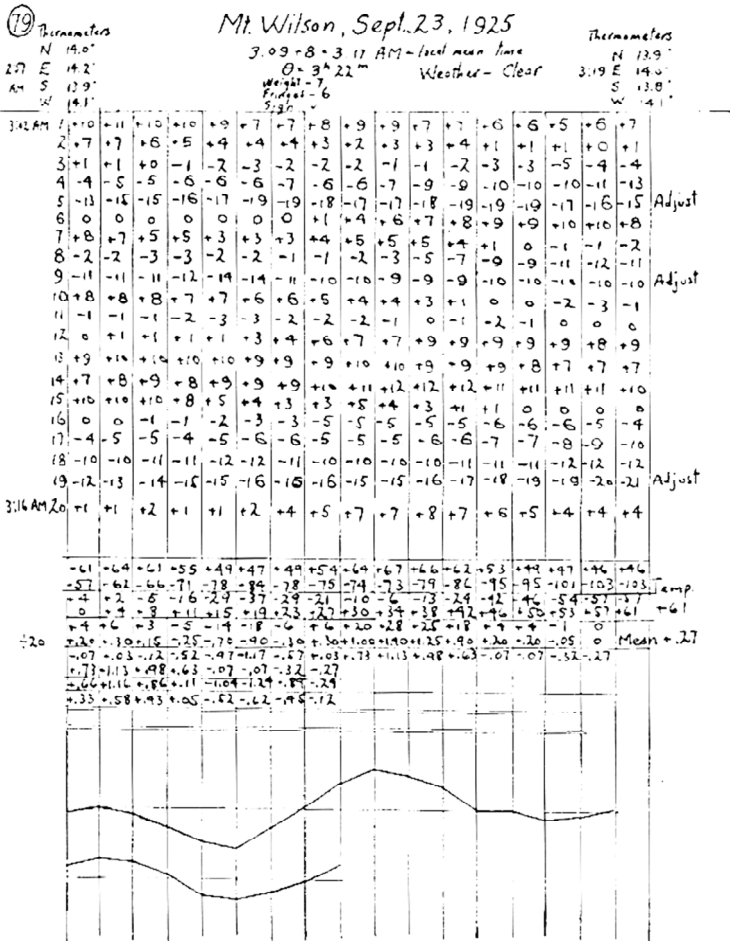 79 Mt. Wilson, Sept. 23, 1925
Thermometers Thermometers
N 14.0° 3:09 + 8 = 3 17 AM - local mean time N 13.9°
2:57 E 14.2° θ = 3ʰ 22ᵐ Weather - Clear 3:19 E 14.0°
AM S 13.9° Weight - 7 S 13.8°
W 14.1° Fringes - 6 W 14.1
Sign -
3:02 AM 1 +10 +11 +10 +10 +9 +7 +7 +8 +9 +9 +7 +7 +6 +6 +5 +6 +7
2 +7 +7 +6 +5 +4 +4 +4 +3 +2 +3 +3 +4 +1 +1 +1 +0 +1
3 +1 +1 +0 -1 -2 -3 -2 -2 -2 -1 -1 -2 -3 -3 -5 -4 -4
4 -4 -5 -5 -6 -6 -6 -7 -6 -6 -7 -9 -9 -10 -10 -10 -11 -13
5 -13 -15 -15 -16 -17 -19 -19 -18 -17 -17 -18 -19 -19 -19 -17 -16 -15 Adjust
6 0 0 0 0 0 0 0 +1 +4 +6 +7 +8 +9 +9 +10 +10 +8
7 +8 +7 +5 +5 +3 +3 +3 +4 +5 +5 +5 +4 +1 0 -1 -1 -2
8 -2 -2 -3 -3 -2 -2 -1 -1 -2 -3 -5 -7 -9 -9 -11 -12 -11
9 -11 -11 -11 -12 -14 -14 -11 -10 -10 -9 -9 -9 -10 -10 -10 -10 -10 Adjust
10 +8 +8 +8 +7 +7 +6 +6 +5 +4 +4 +3 +1 0 0 -2 -3 -1
11 -1 -1 -1 -2 -3 -3 -2 -2 -2 -1 0 -1 -2 -1 0 0 0
12 0 +1 +1 +1 +1 +3 +4 +6 +7 +7 +9 +9 +9 +9 +9 +8 +9
13 +9 +10 +10 +10 +10 +9 +9 +9 +10 +10 +9 +9 +9 +8 +7 +7 +7
14 +7 +8 +9 +8 +9 +9 +9 +10 +11 +12 +12 +12 +11 +11 +11 +11 +10
15 +10 +10 +10 +8 +5 +4 +3 +3 +5 +4 +3 +1 +1 0 0 0 0
16 0 0 -1 -1 -2 -3 -3 -5 -5 -5 -5 -5 -6 -6 -6 -5 -4
17 -4 -5 -5 -4 -5 -6 -6 -5 -5 -5 -6 -6 -7 -7 -8 -9 -10
18 -10 -10 -11 -11 -12 -12 -11 -10 -10 -10 -10 -11 -11 -11 -12 -12 -12
19 -12 -13 -14 -15 -15 -16 -15 -16 -15 -15 -16 -17 -18 -19 -19 -20 -21 Adjust
3:16 AM 20 +1 +1 +2 +1 +1 +2 +4 +5 +7 +7 +8 +7 +6 +5 +4 +4 +4
+61 +64 +61 +55 +49 +47 +49 +54 +64 +67 +66 +62 +53 +49 +47 +46 +46
-57 -62 -66 -71 -78 -84 -78 -75 -74 -73 -79 -86 -95 -95 -101 -103 -103 Temp.
+4 +2 -5 -16 -29 -37 -29 -21 -10 -6 -13 -24 -42 -46 -54 -57 -57 +61
0 +4 +8 +11 +15 +19 +23 +27 +30 +34 +38 +42 +46 +50 +53 +57 +61
+4 +6 +3 -5 -14 -18 -6 +6 +20 +28 +25 +18 +4 +4 -1 0
÷20 +.20 +.30 +.15 -.25 -.70 -.90 -.30 +.30 +1.00 +1.40 +1.25 +.90 +.20 +.20 -.05 0 Mean +.27
-.07 +.03 -.12 -.52 -.97 -1.17 -.57 +.03 +.73 +1.13 +.98 +.63 -.07 -.07 -.32 -.27
+.73 +1.13 +.98 +.63 -.07 -.07 -.32 -.27
+.66 +1.16 +.86 +.11 -1.04 -1.24 -.89 -.24
+.33 +.58 +.43 +.05 -.52 -.62 -.45 -.12